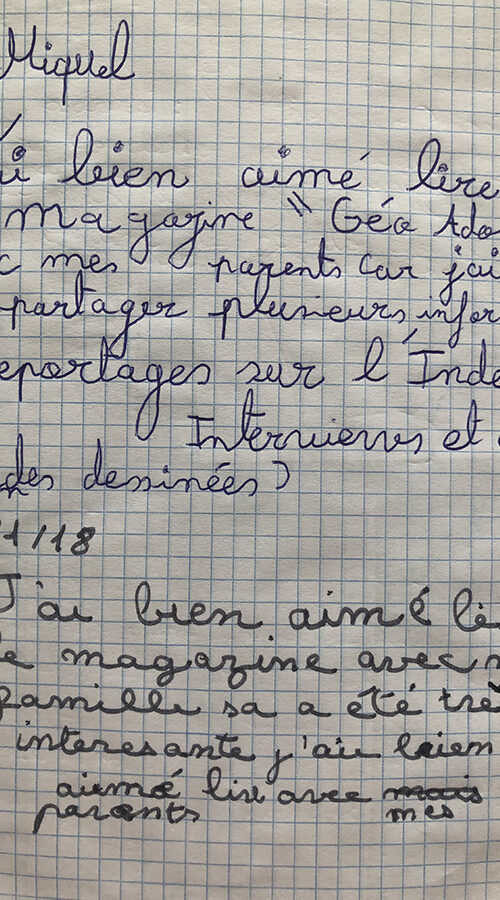 Miquel
i bien aimé lire
magazine " Géo Ado
c mes parents car j'ai
partager plusieurs infor
eportages sur l'Inde
Interviews et
des dessinées)
1/18
J'ai bien aimé li
e magazine avec m
famille sa a été trè
interesante j'ai bien
aimé lire avec mais
parents mes